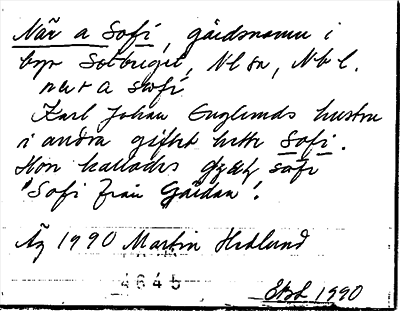 När a Sofi, gårdsnamn i
byn Solberget, Nlsn, Nbl.
Karl Johan Englunds hustru
i andra giftet hette Sofi.
Hon kallades
"Sofi från Gårdan".
Äg 1990 Martin Hedlund
4645
1990